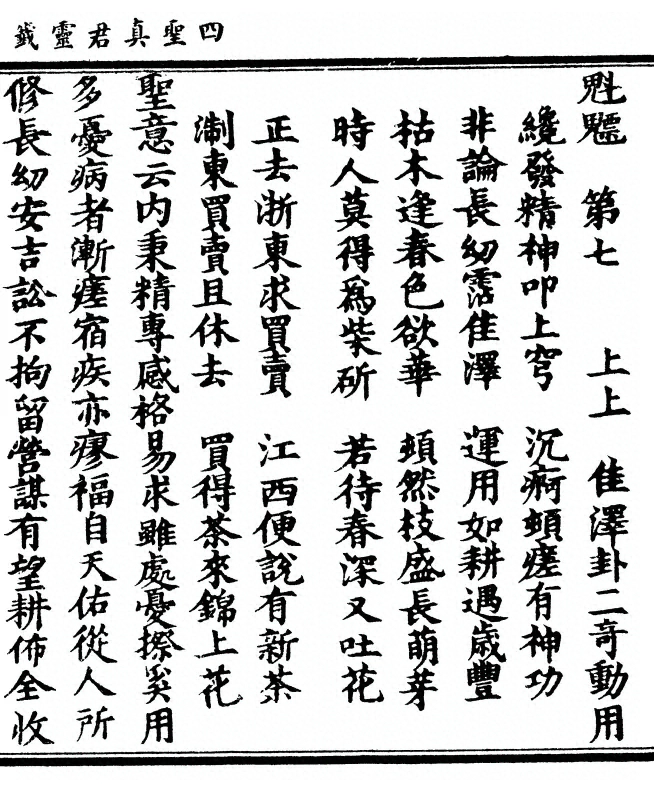 四聖真君靈籤
魁魒　第七　　上上　佳澤卦二奇動用
纔發精神叩上穹　沉痾頓瘥有神功
非論長幼霑佳澤　運用如耕遇歲豐
枯木逢春色欲華　頓然枝盛長萌芽
時人莫得爲柴斫　若待春深又吐花
正去浙東求買賣　江西便說有新茶
淛東買賣且休去　買得茶來錦上花
聖意云内秉精專感格易求雖處憂摖奚用
多憂病者漸瘥宿疾亦瘳福自天佑從人所
修長幼安吉訟不拘留營謀有望耕佈全收